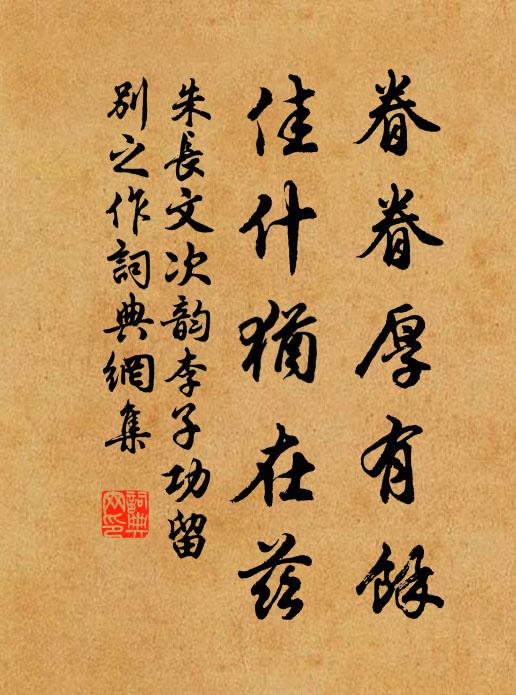 眷眷厚有餘
佳什猶在茲
朱長文次韵李子功留
別之作詞典網集
詞典網印